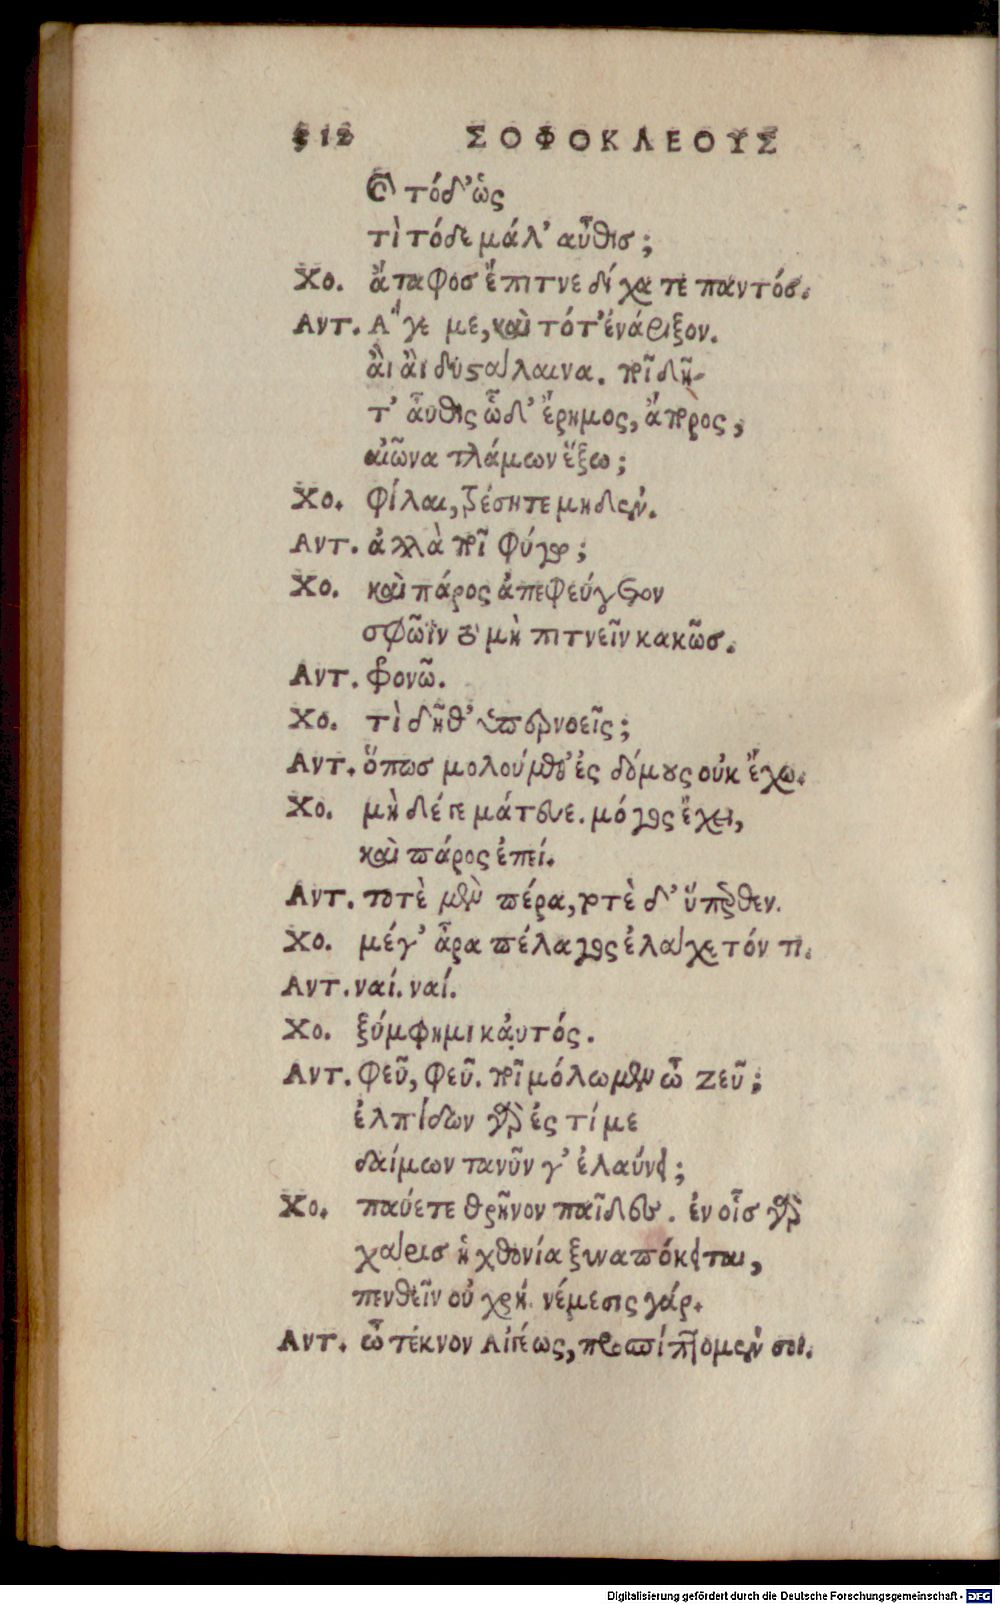 312 ΣΟΦΟΚΛΕΟΥΣ
καὶ τόδ' ὡς
τὶ τόδε μάλ' αὖθισ;
Χο. ἄταφοσ ἔπιτνε δίχα τε παντόσ.
Αντ. Ἄγε με, καὶ τότ' ἐνάριξον.
ἂι ἂι δύσάλαινα. ποῖ δῆ-
τ' αὖθις ὧδ' ἔρημος, ἄπορος,
αἰῶνα τλάμων ἕξω;
Χο. φίλαι, τρέσητε μηδέν.
Αντ. ἀλλὰ ποῖ φύγω;
Χο. καὶ πάρος ἀπεφεύγετον
σφῶϊν τὸ μὴ πιτνεῖν κακῶσ.
Αντ. φρονῶ.
Χο. τὶ δῆθ' ὑπερνοεῖς;
Αντ. ὅπωσ μολούμεθ' ἐς δόμους οὐκ ἔχω.
Χο. μὴ δέγε μάτευε. μόγος ἔχει,
καὶ πάρος ἐπεί.
Αντ. τοτὲ μὲν πέρα, τοτὲ δ' ὕπερθεν.
Χο. μέγ' ἆρα πέλαγος ἐλάχετόν τι.
Αντ. ναί. ναί.
Χο. ξύμφημι καὐτός.
Αντ. φεῦ, φεῦ. ποῖ μόλωμεν ὦ Ζεῦ;
ἐλπίδων γὰρ ἐς τί με
δαίμων τανῦν γ' ἐλαύνει;
Χο. παύετε θρῆνον παῖδες. ἐν οἷσ γὰρ
χάρισ ἡ χθονία ξυναπόκειται,
πενθεῖν οὐ χρή. νέμεσις γάρ.
Αντ. ὦ τέκνον Αἰγέως, προσπίπτομέν σοι.
Digitalisierung gefördert durch die Deutsche Forschungsgemeinschaft - DFG